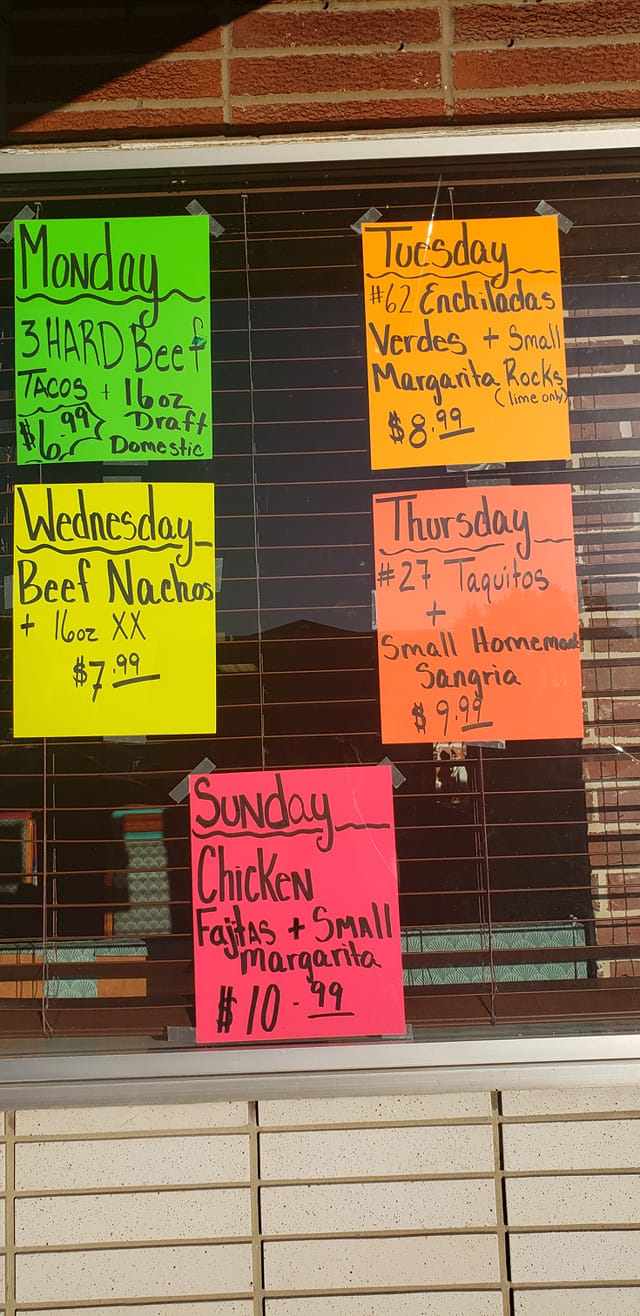 Monday
3 HARD Beef
TACOS + 16oz
$6.99 Draft
Domestic
Tuesday
#62 Enchiladas
Verdes + Small
Margarita Rocks
(lime only)
$8.99
Wednesday
Beef Nachos
+ 16oz XX
$7.99
Thursday
#27 Taquitos
+
Small Homemade
Sangria
$9.99
SUNDAY
CHICKEN
FAJITAS + SMALL
margarita
$10.99